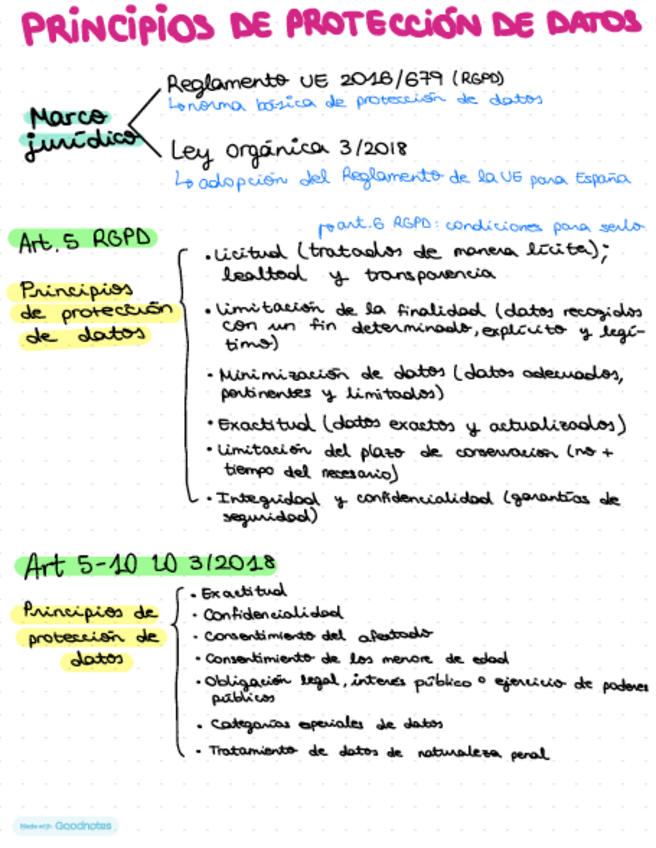 PRINCIPIOS DE PROTECCIÓN DE DATOS
Reglamento UE 2016/679 (RGPD)
↳norma básica de protección de datos
Marco
jurídico
Ley orgánica 3/2018
↳adopción del Reglamento de la UE para España
art. 6 RGPD: condiciones para serlo
Art. 5 RGPD
• Licitud (tratados de manera lícita);
lealtad y transparencia
Principios
de protección
de datos
• Limitación de la finalidad (datos recogidos
con un fin determinado, explícito y legí-
timo)
• Minimización de datos (datos adecuados,
pertinentes y limitados)
• Exactitud (datos exactos y actualizados)
• Limitación del plazo de conservación (no +
tiempo del necesario)
• Integridad y confidencialidad (garantías de
seguridad)
Art 5-10 LO 3/2018
Principios de
protección de
datos
• Exactitud
• Confidencialidad
• Consentimiento del afectado
• Consentimiento de los menore de edad
• Obligación legal, interés público o ejercicio de poderes
públicos
• Categorías especiales de datos
• Tratamiento de datos de naturaleza penal
Made with Goodnotes